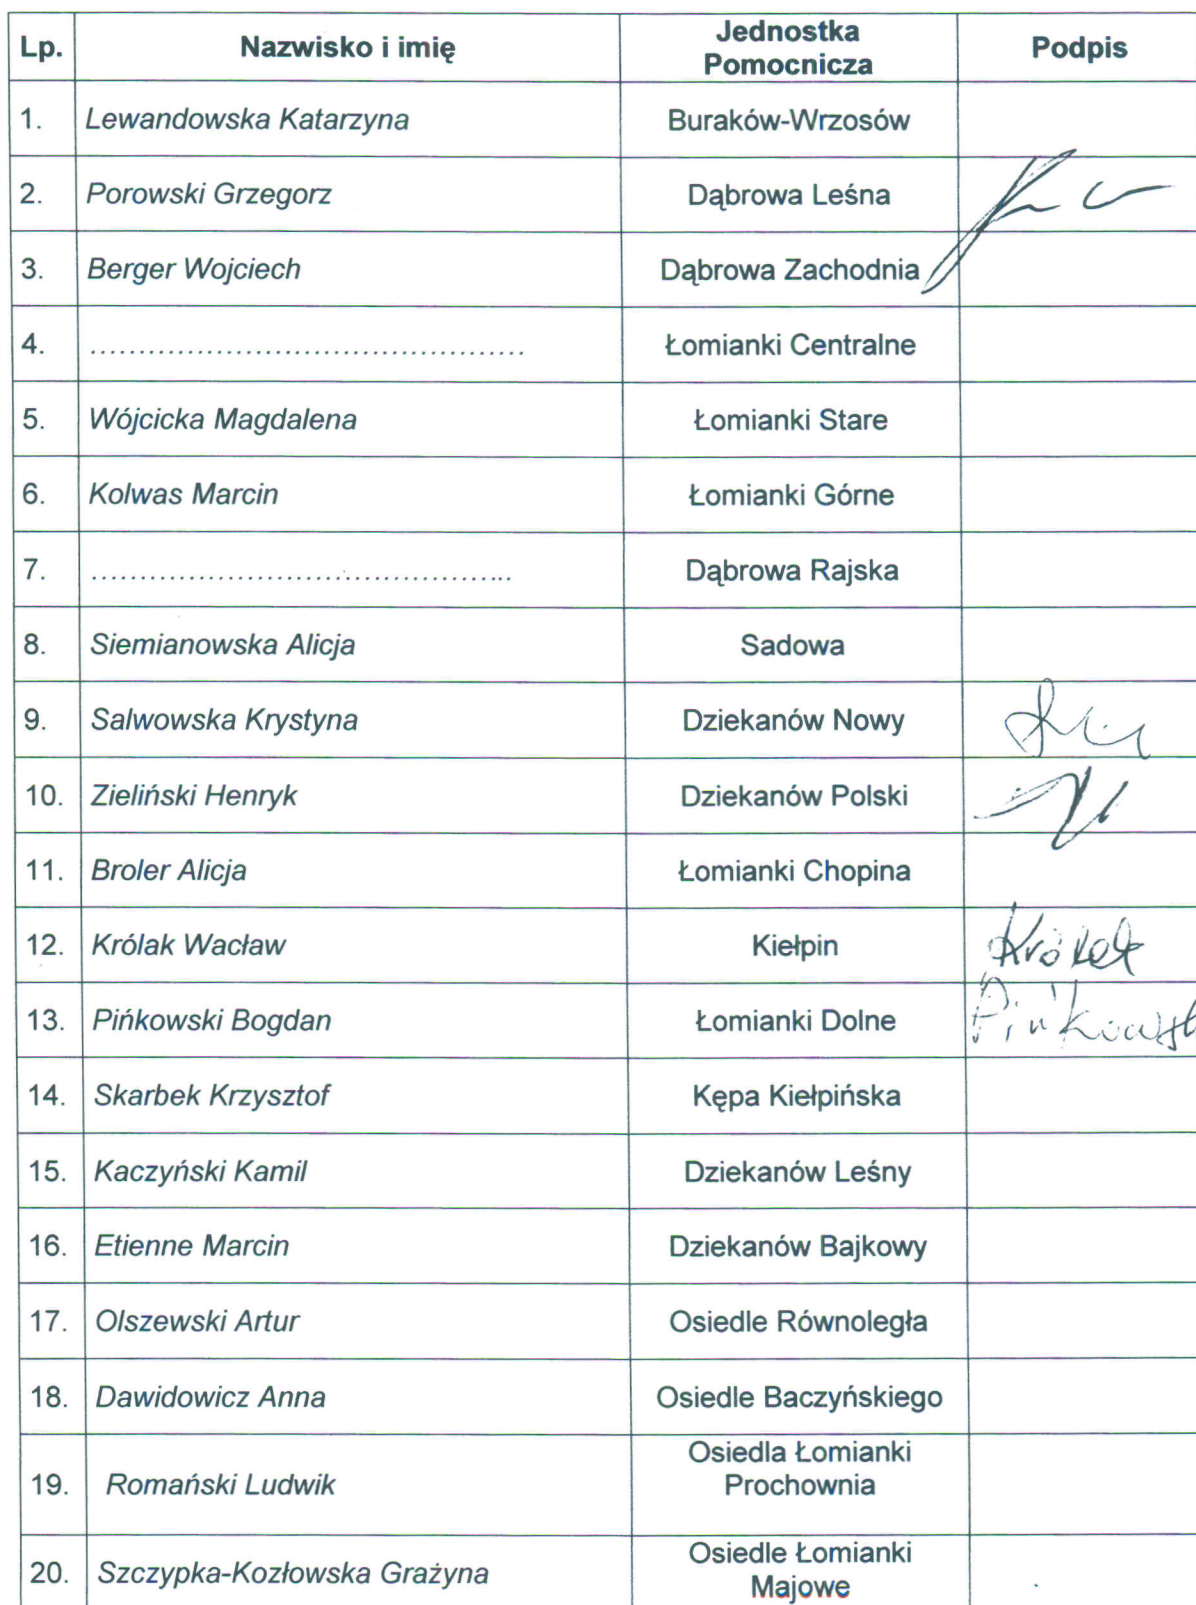 Lp. Nazwisko i imię Jednostka Pomocnicza Podpis
1. Lewandowska Katarzyna Buraków-Wrzosów
2. Porowski Grzegorz Dąbrowa Leśna
3. Berger Wojciech Dąbrowa Zachodnia
4. ............................................. Łomianki Centralne
5. Wójcicka Magdalena Łomianki Stare
6. Kolwas Marcin Łomianki Górne
7. ........................................... Dąbrowa Rajska
8. Siemianowska Alicja Sadowa
9. Salwowska Krystyna Dziekanów Nowy
10. Zieliński Henryk Dziekanów Polski
11. Broler Alicja Łomianki Chopina
12. Królak Wacław Kiełpin Królak
13. Pińkowski Bogdan Łomianki Dolne Pińkowsk
14. Skarbek Krzysztof Kępa Kiełpińska
15. Kaczyński Kamil Dziekanów Leśny
16. Etienne Marcin Dziekanów Bajkowy
17. Olszewski Artur Osiedle Równoległa
18. Dawidowicz Anna Osiedle Baczyńskiego
19. Romański Ludwik Osiedla Łomianki Prochownia
20. Szczypka-Kozłowska Grażyna Osiedle Łomianki Majowe